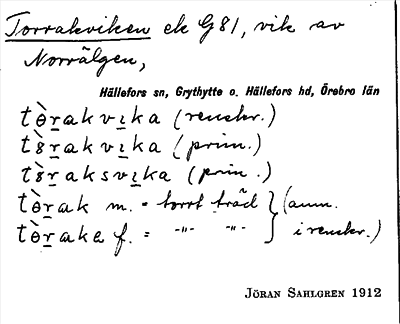 Torrakviken ek G81, vik av
Norrälgen,
Hällefors sn, Grythytte o. Hällefors hd, Örebro län
tò̱rakvi̱ka (renskr.)
tò̱rakvi̱ka (prim.)
tò̱raksvi̱ka (prim.)
tò̱rak m. = torrt träd } (anm.
tò̱raka f. = -"- -"- } i renskr.)
JÖRAN SAHLGREN 1912